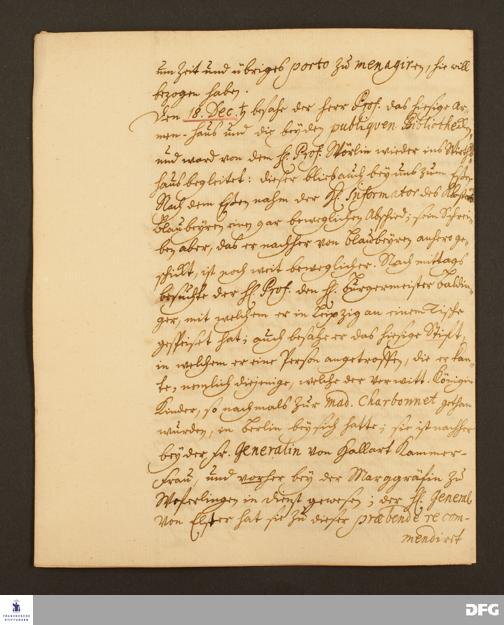 um Zeit und übriges porto zu menagiren, hie will
bezogen haben.
Den 18. Dec. besahe der Herr Prof. das hiesige Ar-
men-Haus und die beyden publiquen Bibliotheken,
und ward von dem H. Prof. Wörlin wieder ins Wirths-
haus begleitet: dieser blieb auch bey uns zum Essen.
Nach dem Essen nahm der H. Informator des
Blaubeyren einen gar beweglichen Abschied; sein Schrei-
ben aber, das er nachher von Blaubeyren anhero ge-
schickt, ist noch weit beweglicher. Nach mittags
besuchte der H. Prof. den H. Bürgermeister Baldin-
ger, mit welchem er in Leipzig an einem Tische
gespeiset hat; auch besahe er das hiesige Stift,
in welchem er eine Person angetroffen, die er kan-
te, nemlich diejenige, welche der verwitt. Königin
Kinder, so nachmals zur Mad. Charbonnet gethan
wurden, in Berlin bey sich hatte; sie ist nachher
bey der Fr. Generalin von Hallart Kammer-
Frau, und vorher bey der Marggräfin zu
Weferlingen in Dienst gewesen; der H. General
von Elster hat sie zu dieser præbende recom-
mendiret
FRANCKESCHE
STIFTUNGEN
DFG